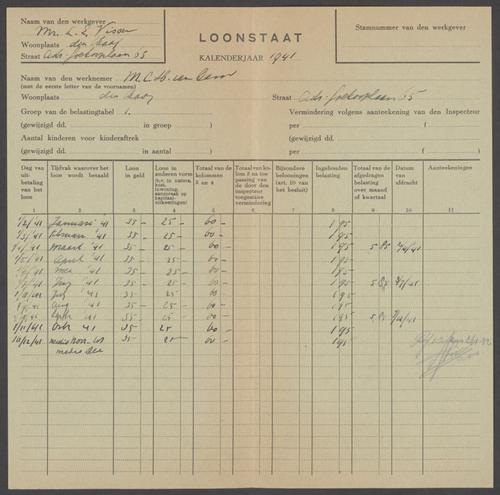 Naam van den werkgever
Mr. L. E. Visser
Woonplaats den Haag
Straat 55
LOONSTAAT
KALENDERJAAR 1941
Stamnummer van den werkgever
Naam van den werknemer M.C.H. van
(met de eerste letter van de voornamen)
Woonplaats den Haag Straat 55
Groep van de belastingtabel 1. Vermindering volgens aanteekening van den Inspecteur
(gewijzigd dd. in groep ) per (
Aantal kinderen voor kinderaftrek (gewijzigd dd.
(gewijzigd dd. in aantal ) per (
Dag van uitbetaling van het loon
Tijdvak waarover het loon wordt betaald
Loon in geld
Loon in anderen vorm (b.v. in natura, kost, inwoning, aanspraak op kapitaaluitkeeringen)
Totaal van de kolommen 3 en 4
Totaal van kolom 5 na toepassing van de door den inspecteur toegestane vermindering
Bijzondere belooningen (art. 10 van het besluit)
Ingehouden belasting
Totaal van de afgedragen belasting over maand of kwartaal
Datum van afdracht
Aanteekeningen
1 2 3 4 5 6 7 8 9 10 11
1/2/41 Januari '41 35 - 25 - 60 - 1 95
1/3/41 Februari '41 35 - 25 - 60 - 1 95
1/4/41 Maart '41 35 - 25 - 60 - 1 95 5 85
1/5/41 April '41 35 - 25 - 60 - 1 95
Mei '41 35 - 25 - 60 - 1 95
Juny '41 35 - 25 - 60 - 1 95 5 85
July '41 35 - 25 - 60 - 1 95
Aug '41 35 - 25 - 60 - 1 95
Sept '41 35 - 25 - 60 - 1 95 5 85
1/11/41 Oct '41 35 - 25 - 60 - 1 95
10/12/41 medio Nov- 35 - 25 - 60 - 1 95
medio Dec